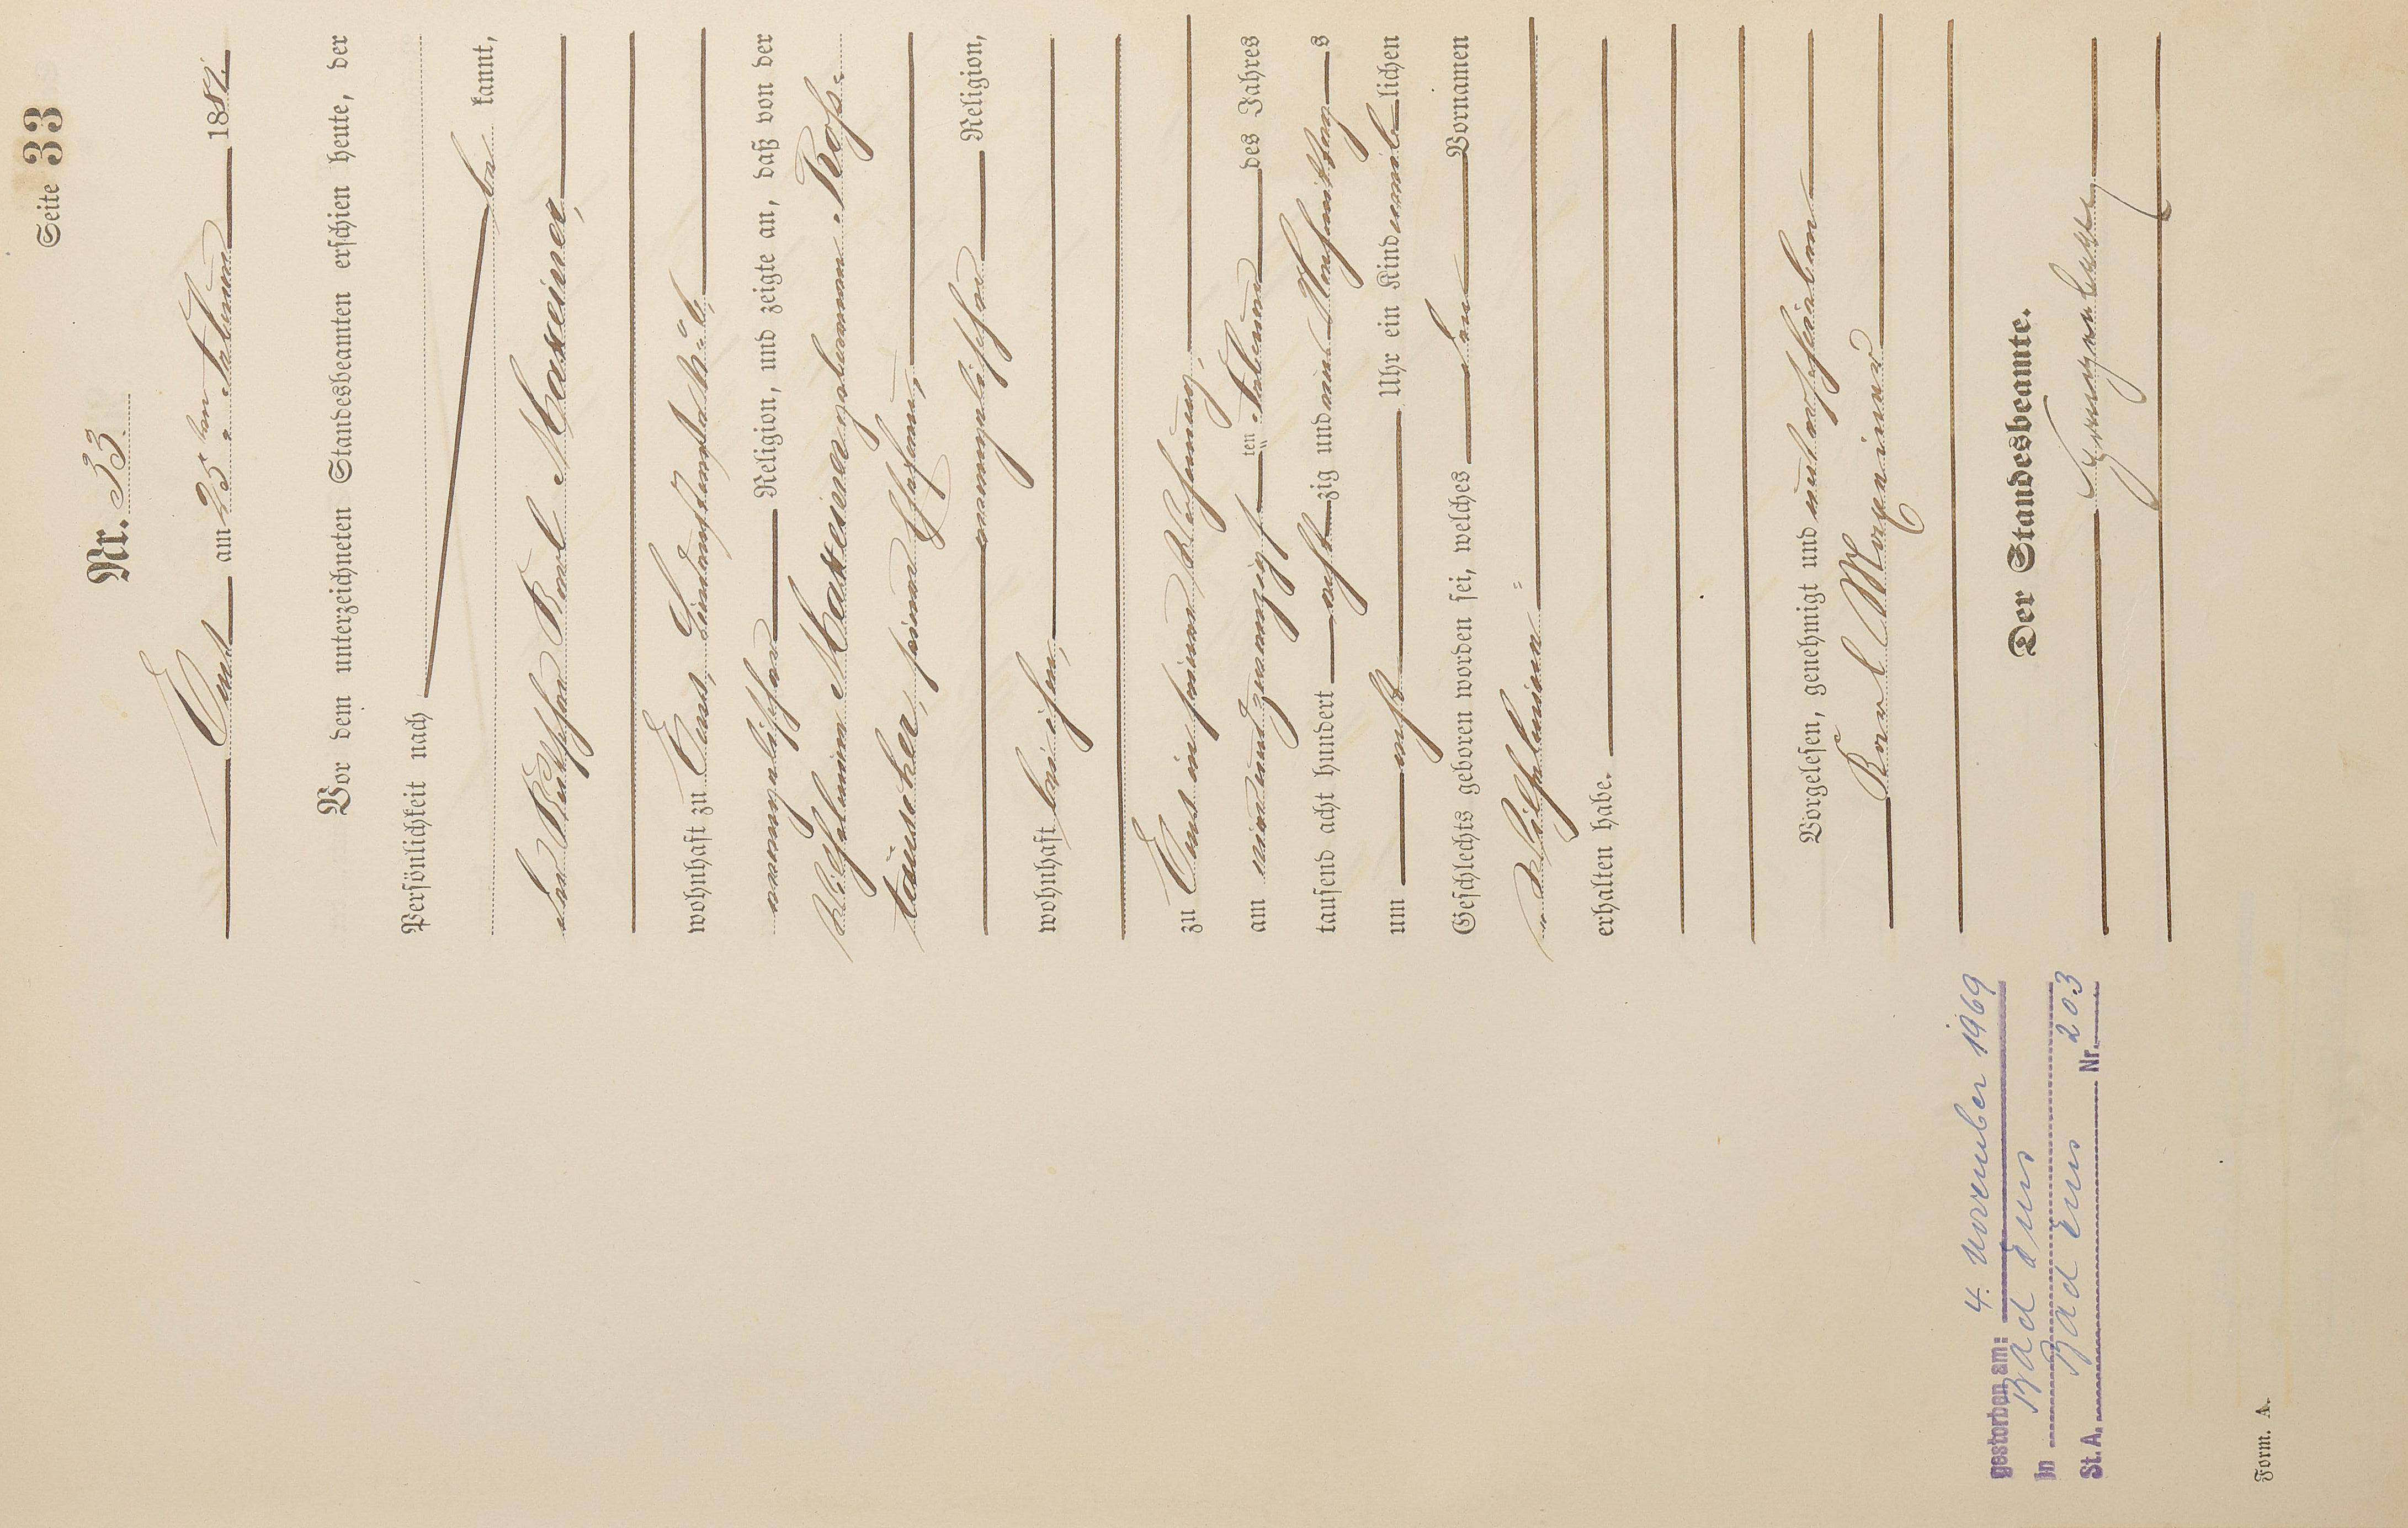 Seite 33
Nr. 33.
Ems am 25ten Februar 1881.
Vor dem unterzeichneten Standesbeamten erschien heute, der
Persönlichkeit nach
be kannt,
der Karl Maxeiner,
wohnhaft zu Ems,
evangelischer Religion, und zeigte an, daß von der
Wilhelmine Maxeiner geborenen Roß-
täuscher, seiner Ehefrau,
evangelischer Religion,
wohnhaft bei ihm,
zu Ems in seiner Wohnung,
am vierundzwanzigsten Februar des Jahres
tausend acht hundert achtzig und eins Nachmittags
um acht Uhr ein Kind weiblichen
Geschlechts geboren worden sei, welches den Vornamen
Wilhelmine
erhalten habe.
Vorgelesen, genehmigt und unterschrieben
Karl Maxeiner
Der Standesbeamte.
gestorben am: 4. November 1969
in Bad Ems
St. A. Bad Ems Nr. 203
Form. A.